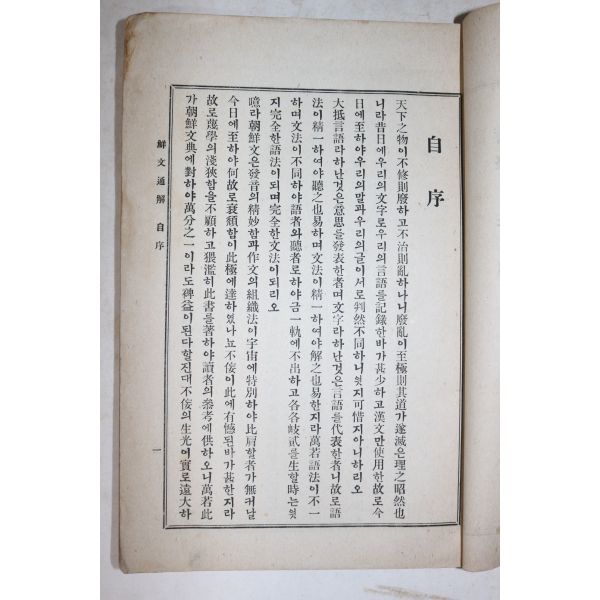 自序
天下之物이不修則廢하고不治則亂하나니廢亂이至極則其道가遂滅은理之昭然也
니라昔日에우리의文字로우리의言語를記錄한바가甚少하고漢文만使用한故로今
日에至하야우리의말과우리의글이서로判然不同하니엇지可惜지아니하리오
大抵言語라하난것은意思를發表한者며文字라하난것은言語를代表한者니故로語
法이精一하여야聽之也易하며文法이精一하여야解之也易한지라萬若語法이不一
하며文法이不同하야語者와聽者로하야금一軌에不出하고各各岐貳를生할時는엇
지完全한語法이되며完全한文法이되리오
噫라朝鮮文은發音의精妙함과作文의組織法이宇宙에特別하야比肩할者가無커날
今日에至하야何故로衰頹함이此極에達하엿나뇨不佞이此에有憾된바가甚한지라
故로蔑學의淺狹함을不顧하고猥濫히此書를著하야讀者의參考에供하오니萬若此
가朝鮮文典에對하야萬分之一이라도裨益이된다할진대不佞의生光이實로遠大하
鮮文通解 自序
一